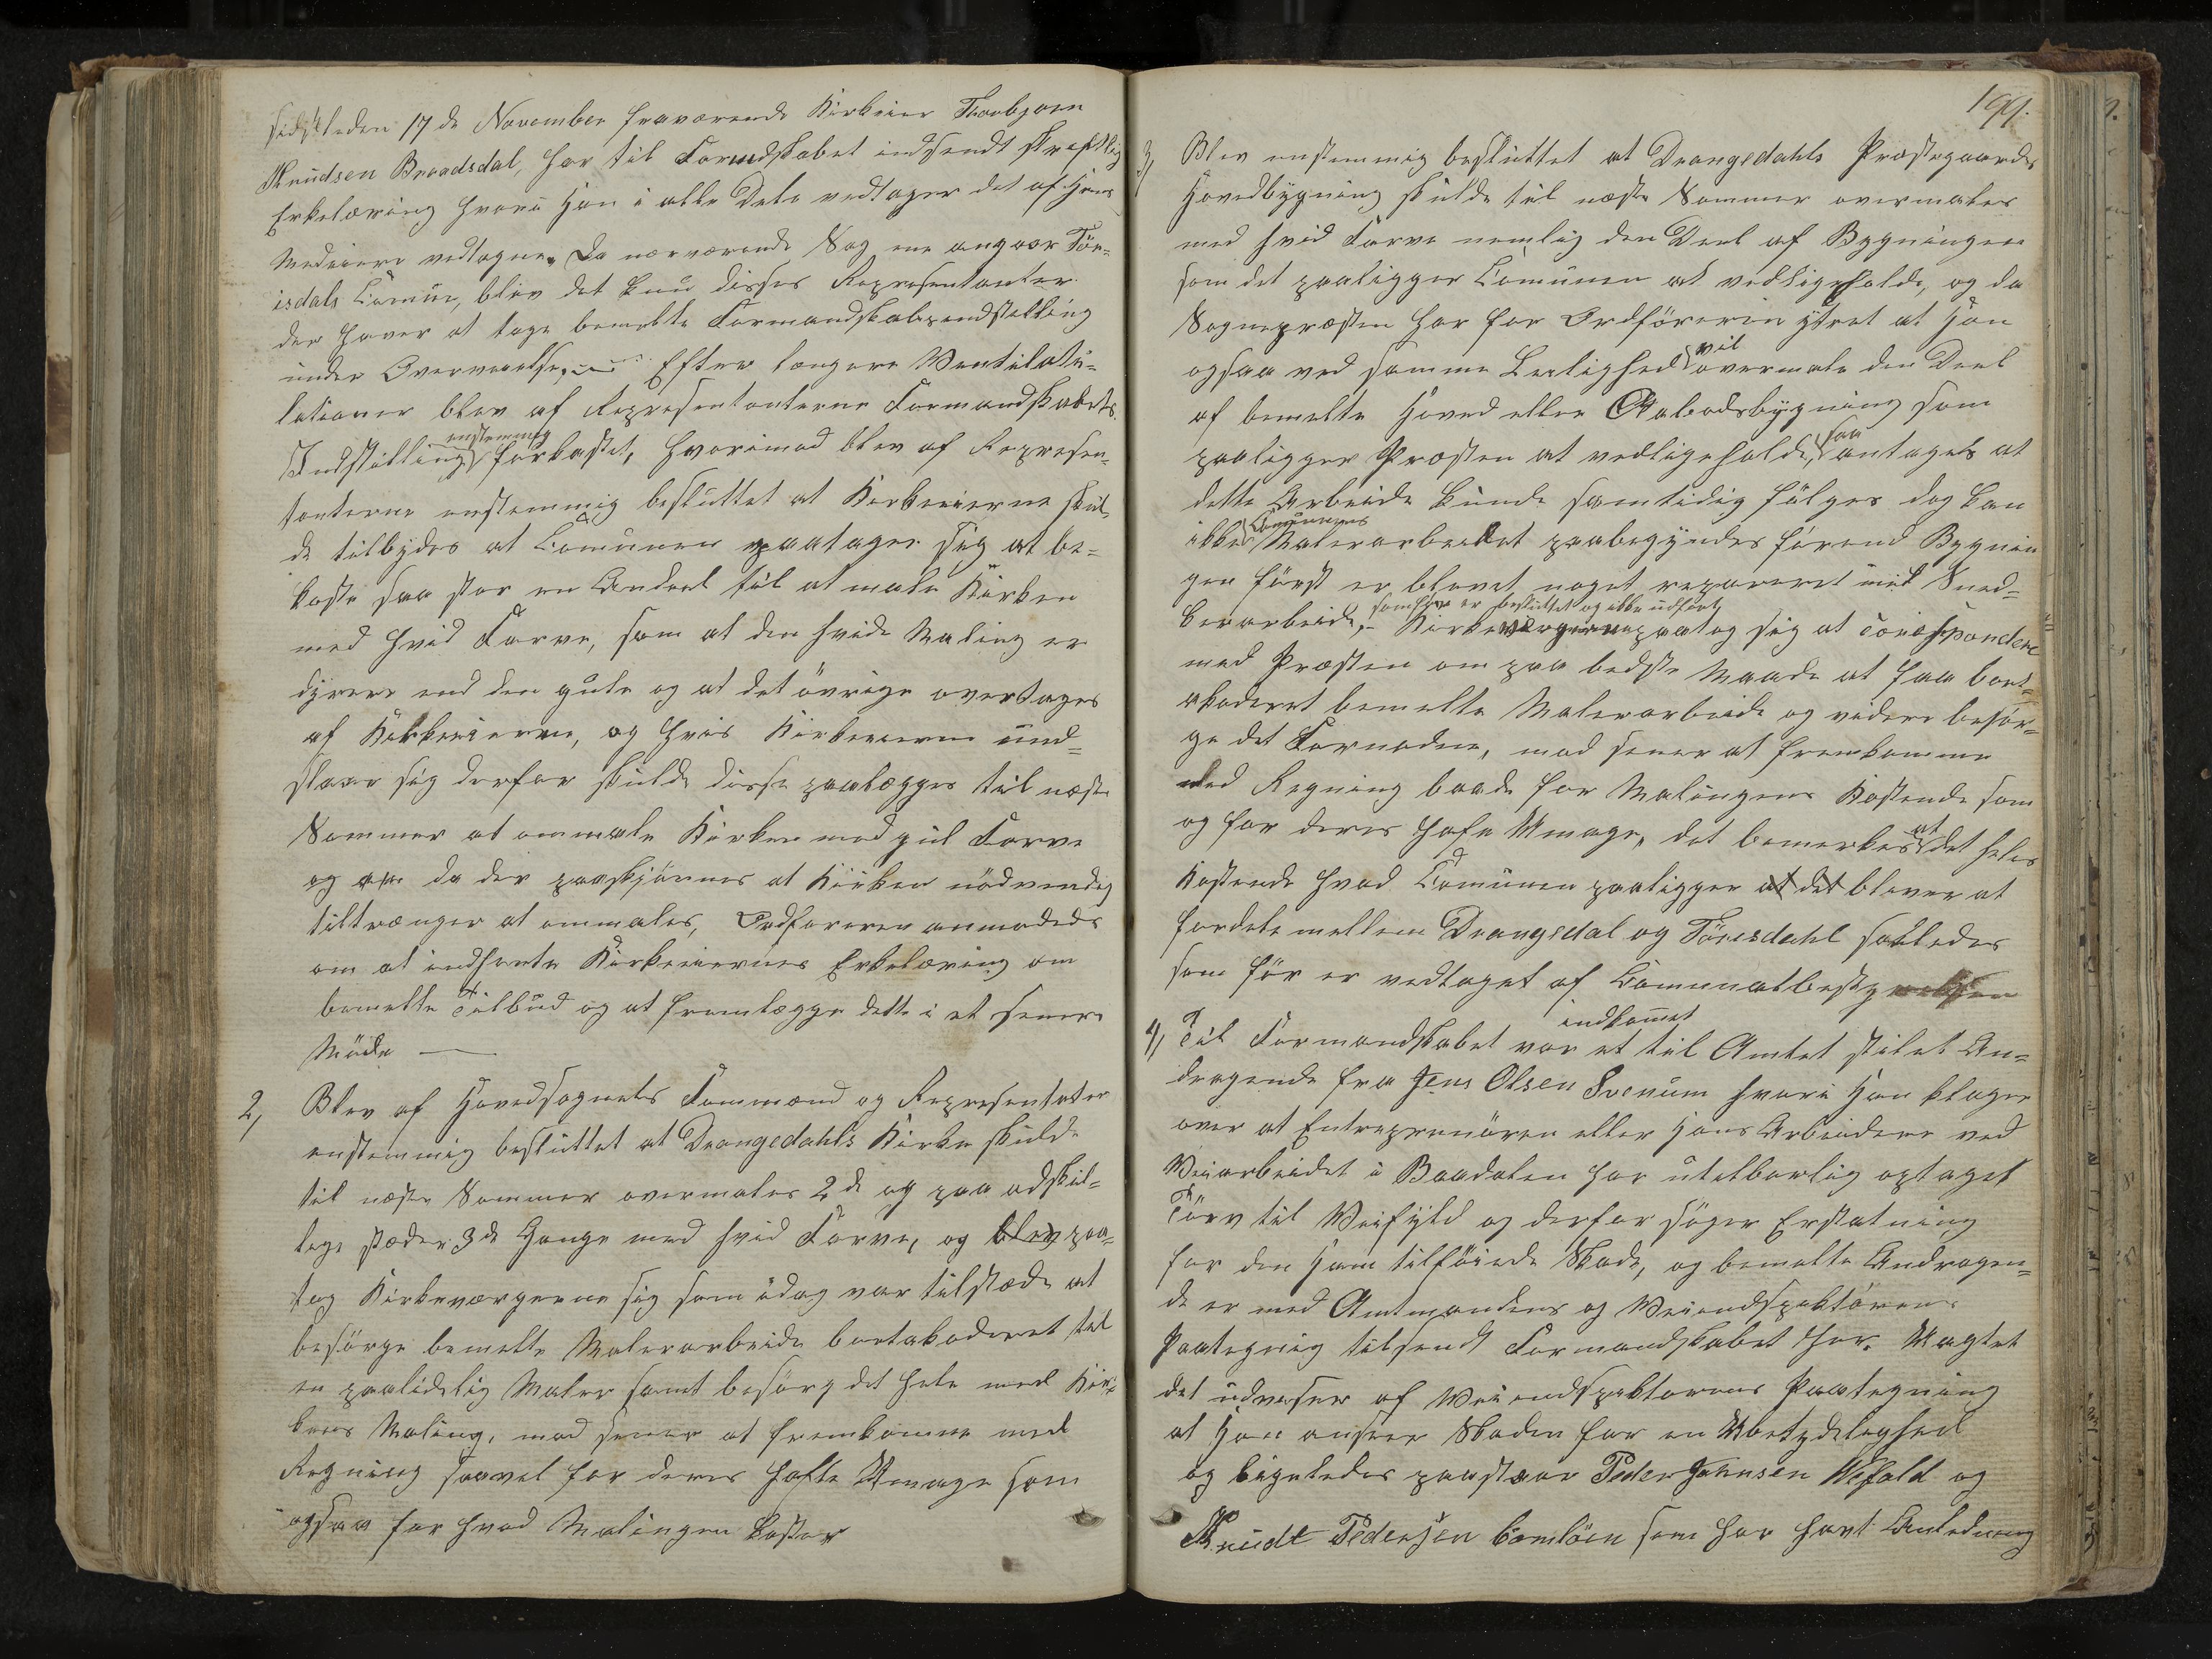 sidstleden 17de November fraværende Kirkeier Thorbjørn
Knudsen Brødsdal, har til Formandskabet indsendt skreftlig
Erkelæring hvori Han i alle Dele vedtager det af Hans
Medeiere vedtagne. Da nærværende Sag ene angaar Tör-
isdals Comune, blev det kun disses Representanter
der haver at tage bemelte Formandskabsindstelling
under Overveielse, Efter længere Ventilatu-
lationer blev af Representanterne Formandskabets
enstemmig
Indstilling forkastet, hvorimod blev af Represen-
tanterne enstemmig besluttet at Kirkeeierne skul-
de tilbydes at Comunen paatager sig at be-
koste saa stor en Andeel til at male Kirken
med hvid Farve, som at den hvide Maling er
dyrere end den gule og at det övrige overtages
af Kirkeeierne, og hvis Kirkeeierne und-
slaar sig derfor skulde disse paalægges til næste
Sommer at ommale Kirken med gul Farve
og da der paaskjönnes at Kirken nödvendig
tiltrænger at ommales, Ordföreren anmodede
om at indhente Kirkeeiernes Erkelæring om
bemelte Tilbud og at fremlægge dette i et senere
Möde
2, Blev af Hovedsognets Formænd og Representater
enstemmig besluttet at Drangedahls Kirke skulde
til næste Sommer overmales 2de og paa adskil-
lige stæder 3de Gange med hvid Farve, og blev paa-
tog Kirkeværgerne sig som idag var tilstæde at
besörge bemelte Malerarbeide bortakoderet til
en paalidelig Maler samt besörg det hele med Kir-
kens Maling, mod senere at fremkomme med
Regning saavel for deres hafte Umage som
ogsaa for hvad Malingen koster
199.
3, Blev enstemmig besluttet at Drangedahls Præstegaards
Hovedbygning skulde til næste Sommer overmales
med hvid Farve nemlig den Deel af Bygningen
som det paaligger Comunen at vedligeholde, og da
Sognepræsten har for Ordföreren ytret at Han
vil
ogsaa ved samme Leilighed overmale den Deel
af bemelte Hoved eller Aabodsbygning som
saa
paaligger Præsten at vedligeholde, antages at
dette Arbeide kunde samtidig fölges dog kan
Comunens
ikke Malerarbeidet paabegyndes förend Bygnin
gen först er blevet noget repareret med Sned-
som för er besluttet og ikke udfört
kerarbeide, Kirkeværgerne paatog sig at corespondere
med Præsten om paa bedste Maade at faa bort-
akoderet bemelte Malerarbeide og videre besör-
ge det Fornödne, mod sener at fremkomme
med Regning baade for Malingens Kostende som
og for deres hafte Umage, det bemerkes
at
det heles
Kostende hvad Comunen paaligger at det bliver at
fordele mellem Drangedal og Törrisdahl saaledes
som för er vedtaget af Comunalbestyrelsen
indkommet
4, Til Formandskabet var et til Amtet stilet An-
dragende fra Jens Olsen Svenum hvori Han klager
over at Entreprenören eller Hans Arbeidere ved
Veiarbeidet i Bradalen har utilbørlig optaget
Törv til Veifyld og derfor söger Erstatning
for den Ham tilföiede Skade, og bemelte Andragen-
de er med Amtmandens og Veiindspektörens
Paategning tilsendt Formandskabet her. Uagtet
det udviser af Veiindspektorens Paategning
at Han anseer Skaden for en Ubetydelighed
og ligeledes paastaar Peder Johnsen Vefald og
Knudt Pedersen som har havt Anledning